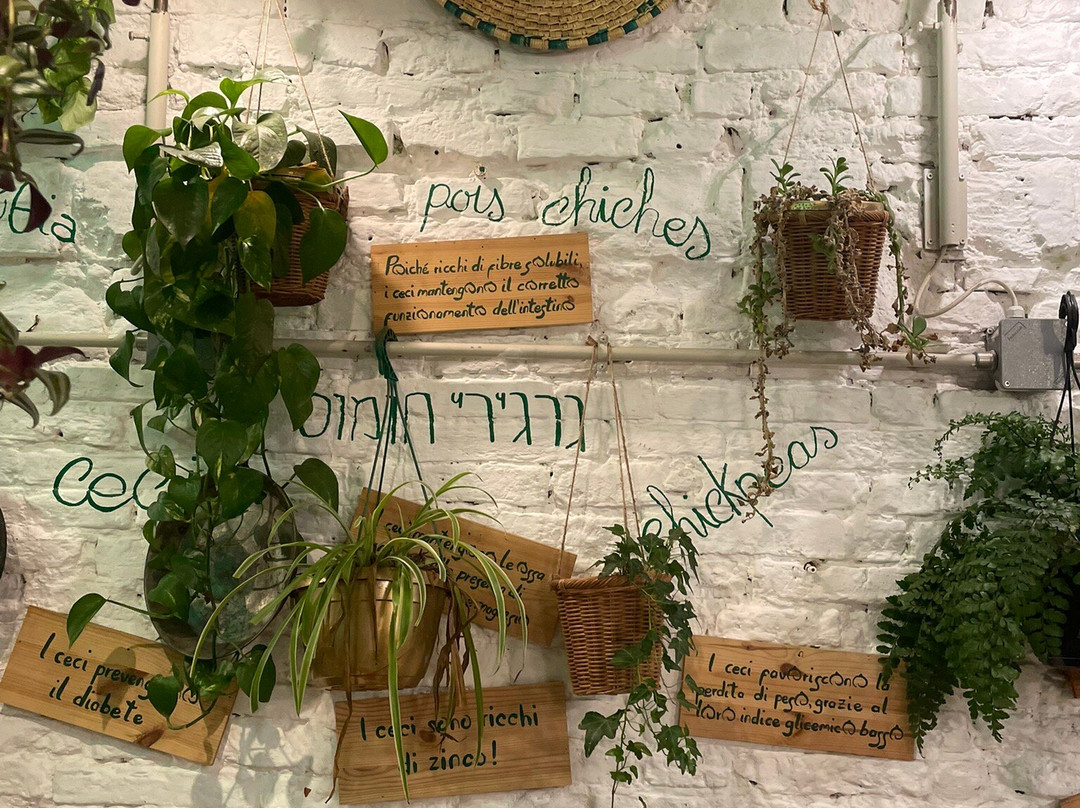 pois chiches
Poiché ricchi di fibre solubili,
i ceci mantengono il corretto
funzionamento dell'intestino
גרגירי חומוס
ceci
chickpeas
ceci le ossa
I ceci prevengono
il diabete
I ceci sono ricchi
di zinco!
I ceci favoriscono la
perdita di peso, grazie al
loro indice glicemico basso